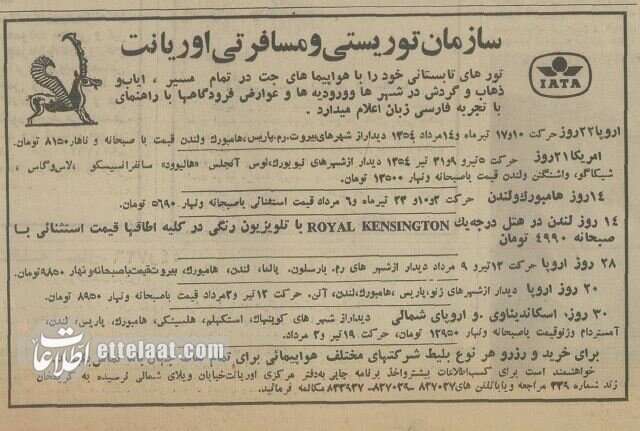 سازمان توریستی و مسافرتی اوریانت
IATA
تور های تابستانی خود را با هواپیما های جت در تمام مسیر ، ایاب و
ذهاب و گردش در شهر ها وورودیه ها و عوارض فرودگاهها با راهنمای
با تجربه فارسی زبان اعلام میدارد .
اروپا ۲۲ روز حرکت ۱۰و۱۷ تیرماه و۱۴ مرداد ۱۳۵۴ دیدار از شهرهای بیروت، رم، پاریس، هامبورک ولندن قیمت با صبحانه و ناهار ۸۱۵۰ تومان.
امریکا ۲۱ روز حرکت ۵ تیر و ۹و۳۱ تیر ۱۳۵۴ دیدار ازشهرهای نیویورک، لوس آنجلس «هالیوود» سانفرانسیسکو ، لاس‌وگاس ،
شیکاگو، واشنگتن ولندن قیمت باصبحانه ونهار ۱۳۵۰۰ تومان.
۱۴ روز هامبورک ولندن حرکت ۳و۱۰و ۲۴ تیرماه و۶ مرداد قیمت استثنائی باصبحانه ونهار ۵۶۹۰ تومان.
۱۴ روز لندن در هتل درجه یک ROYAL KENSINGTON با تلویزیون رنگی در کلیه اطاقها قیمت استثنائی بـا
صبحانه ۴۹۹۰ تومان
۲۸ روز اروپا حرکت ۱۳ تیر و ۹ مرداد دیدار ازشهر های رم، بارسلون، پالما، لندن، هامبورک، بیروت قیمت باصبحانه ونهار ۹۸۵۰ تومان.
۲۰ روز اروپا دیدار ازشهرهای ژنو، پاریس ،هامبورک، لندن، آتن. حرکت ۱۲ تیر و۲ مرداد قیمت باصبحانه ونهار ۸۹۵۰ تومان.
۳۰ روز، اسکاندیناوی و اروپای شمالی دیدار از شهر های کوپنهاک، استکهلم، هلسینکی، هامبورک، پاریس، لندن،
آمستردام وژنو قیمت باصبحانه ونهار ۱۲۹۵۰ تومان، حرکت ۱۹ تیر و۲ مرداد.
برای خرید و رزرو هر نوع بلیط شرکتهای مختلف هواپیمائی برای
خواهشمند است برای کسب اطلاعات بیشتر واخذ برنامه چاپی به‌دفتر مرکزی اوریانت خیابان ویلای شمالی نرسیده به کریمخان
زند شماره ۳۳۹ مراجعه و یاباتلفن های ۸۲۷۰۲۷- ۸۲۷۰۲۹- ۸۳۳۹۳۷ مکالمه فرمائید.
اطلاعات ettelaat.com